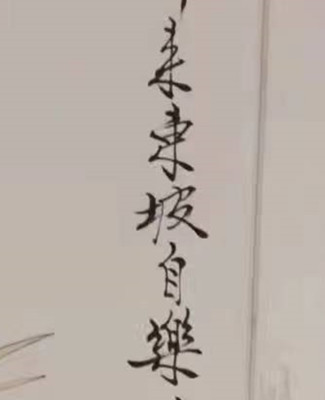 来東坡自樂